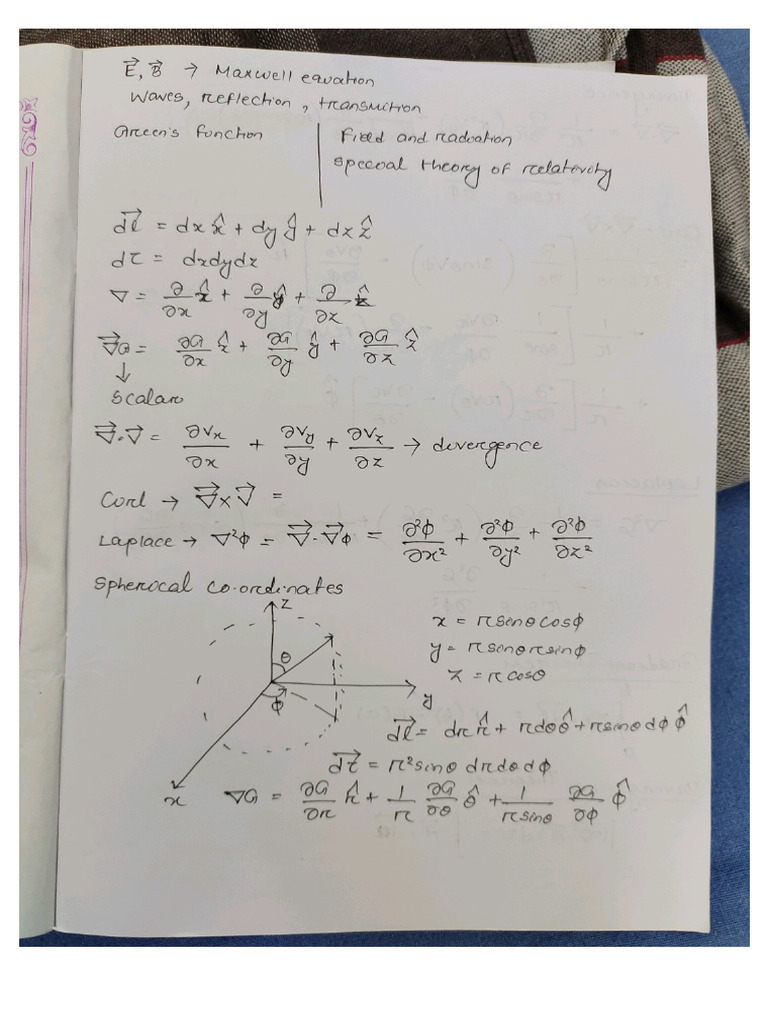 E⃗, B⃗ → Maxwell equation
Waves, reflection, transmition
Green's Function
Field and radiation
Special theory of relativity
dl⃗ = dx x̂ + dy ŷ + dz ẑ
dτ = dxdydz
∇ = ∂/∂x x̂ + ∂/∂y ŷ + ∂/∂z ẑ
∇⃗G = ∂G/∂x x̂ + ∂G/∂y ŷ + ∂G/∂z ẑ
↓
Scalar
∇⃗·V⃗ = ∂Vx/∂x + ∂Vy/∂y + ∂Vz/∂z → divergence
Curl → ∇⃗×V⃗ =
Laplace → ∇²φ = ∇⃗·∇⃗φ = ∂²φ/∂x² + ∂²φ/∂y² + ∂²φ/∂z²
Spherical co-ordinates
z
θ
φ
y
x
x = r sinθ cosφ
y = r sinθ r sinφ
z = r cosθ
dl⃗ = dr r̂ + r dθ θ̂ + r sinθ dφ φ̂
dτ⃗ = r² sinθ dr dθ dφ
∇G = ∂G/∂r r̂ + 1/r ∂G/∂θ θ̂ + 1/r sinθ ∂G/∂φ φ̂